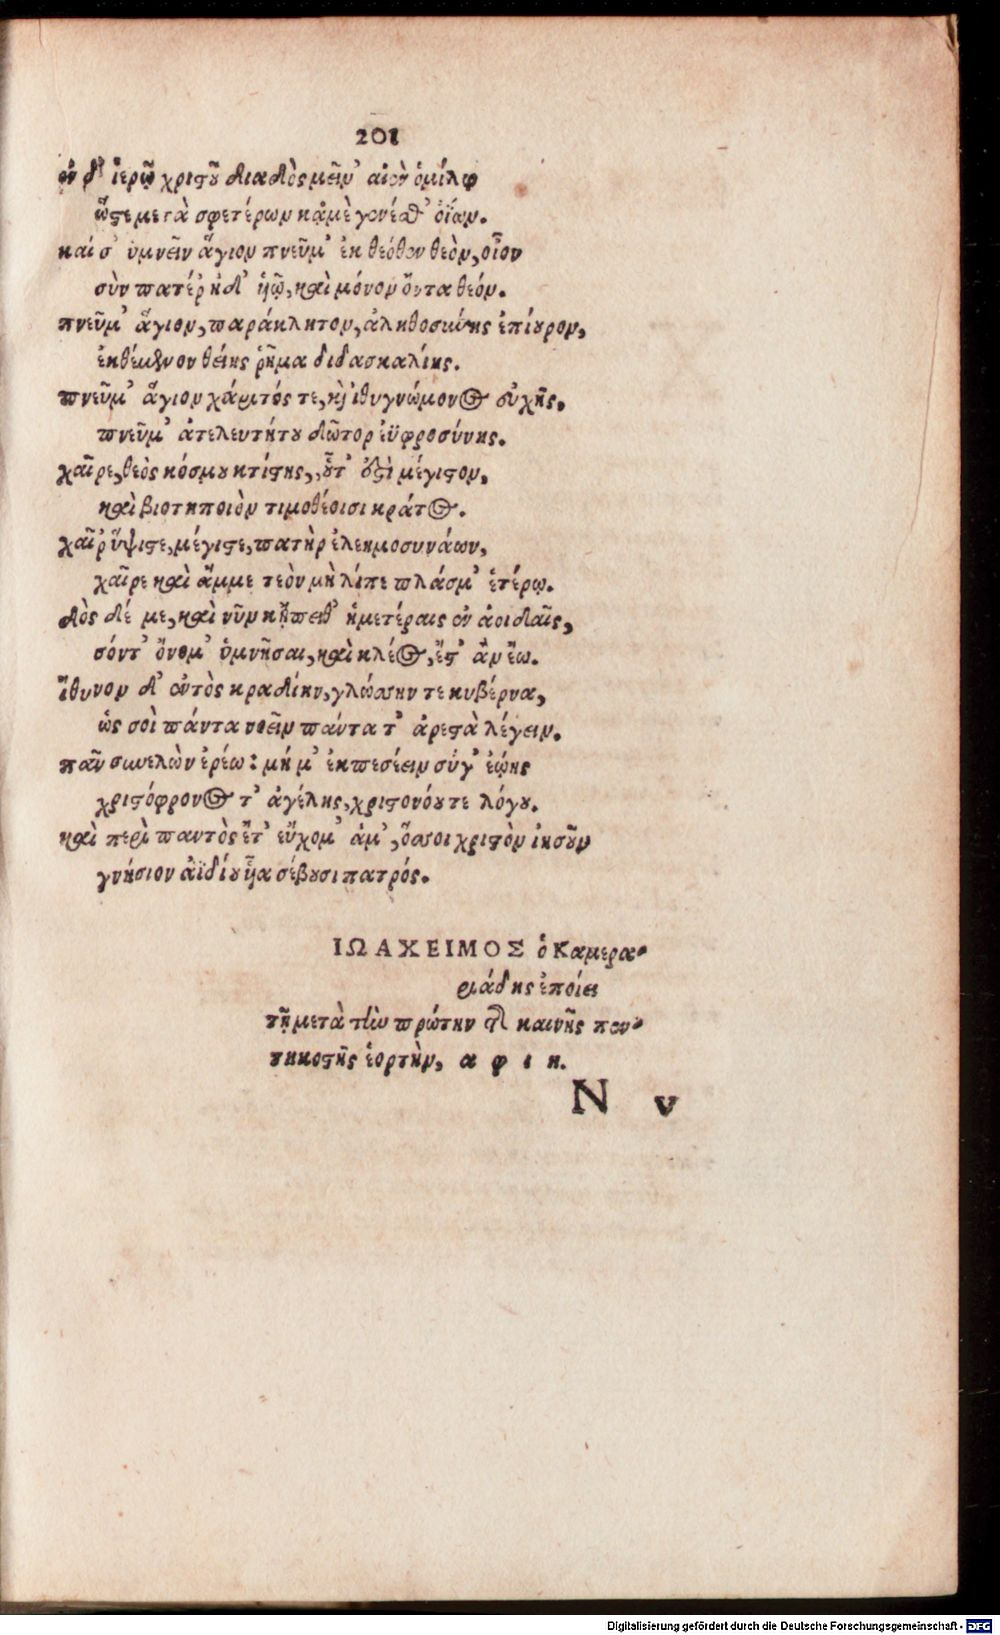 201
ἐν δ' ἱερῷ χριστοῦ διαδὸς μεῖν' αἰὲν ὁμίλῳ
ὥστε μετὰ σφετέρων κᾀμὲ γενέσθ' ὀΐων.
καί σ' ὑμνεῖν ἅγιον πνεῦμ' ἐκ θεόθεν θεὸν, οἷον
σὺν πατέρ' ἠδ' ἡῷ, καὶ μόνον ὄντα θεόν.
πνεῦμ' ἅγιον, παράκλητον, ἀληθοσύνης ἐπίουρον,
ἐκθέμενον θείης ῥῆμα διδασκαλίης.
πνεῦμ' ἅγιον χάριτός τε, καὶ ἰθυγνώμονος εὐχῆς,
πνεῦμ' ἀτελευτήτου δῶτορ ἐϋφροσύνης.
χαῖρε, θεὸς κόσμου κτίστης, οὗτ' ἐστὶ μέγιστον,
καὶ βιοτηποιὸν τιμοθέοισι κράτος.
χαῖρ' ὕψιστε, μέγιστε, πατὴρ ἐλεημοσυνάων,
χαῖρε καὶ ἄμμε τεὸν μὴ λίπε πλάσμ' ἑτέρῳ.
δὸς δέ με, καὶ νῦν κἤπειθ' ἡμετέραις ἐν ἀοιδαῖς,
σόντ' ὄνομ' ὑμνῆσαι, καὶ κλέος, ἔστ' ἂν ἔω.
ἴθυνον δ' αὐτὸς κραδίην, γλώσσην τε κυβέρνα,
ὡς σοὶ πάντα νοεῖν πάντα τ' ἀρεστὰ λέγειν.
πᾶν συνελὼν ἐρέω: μή μ' ἐκπεσέειν σύγ' ἐῴης
χριστόφρονος τ' ἀγέλης, χριστονόου τε λόγου.
καὶ περὶ παντὸς ἔτ' εὔχομ' ἀμ', ὅσσοι χριστὸν ἰησοῦν
γνήσιον ἀϊδίου ἧα σέβουσι πατρός.
ΙΩΑΧΕΙΜΟΣ ὁ Καμερα-
ριάδης ἐποίει
τῇ μετὰ τὴν πρώτην τῆς καινῆς πεν-
τηκοστῆς ἑορτὴν, α φ ι η.
N v
Digitalisierung gefördert durch die Deutsche Forschungsgemeinschaft - DFG